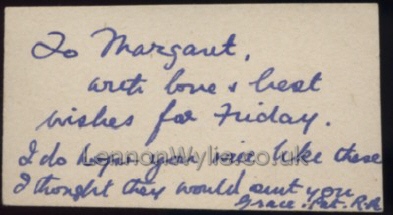 To Margaret,
with love & best
wishes for Friday.
I do hope you will like these
I thought they would suit you
Grace. Pat. R.A.
LennonWylie.co.uk